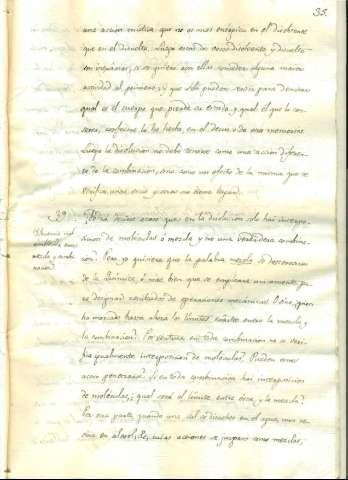 33.
una acción mutua que no es mas enérgica en el disolvente
que en el disuelto. Luego estas dos voces disolvente y disuelto
son impropias, si se quiere con ellas conceder alguna mayor
actividad al primero; y que solo pueden servir para denotar
qual es el cuerpo que pierde su estado, y qual el que lo con
serva, conforme lo ha hecho, en el decurso de esta memoria.
Luego la disolucion no debe tenerse como una accion diferen
te de la combinacion, sino como un efecto de la misma que se
verifica unas veces y otras no tiene lugar.
39. Se dirá acaso que en la disolucion solo hai interpo
sicion de moléculas ó mezcla y no una verdadera combina
cion. Pero yo quisiera que la palabra mezcla se desterrase
de la Química, ó mas bien que se emplease unicamente pa
ra designar resultados de operaciones mecánicas. O sino ¿quien
ha marcado hasta ahora los límites entre la mezcla y
la combinacion? Por ventura en toda combinacion no se veri
fica igualmente interposicion de moléculas? Pueden estas
acaso penetrarse? Si en toda combinacion hai interposicion
de moléculas, ¿qual será el límite entre esta, y la mezcla?
Por otra parte quando una sal se disuelve en el agua, una re
sina en alcool, &c, cuias acciones se juzgan como mezclas,